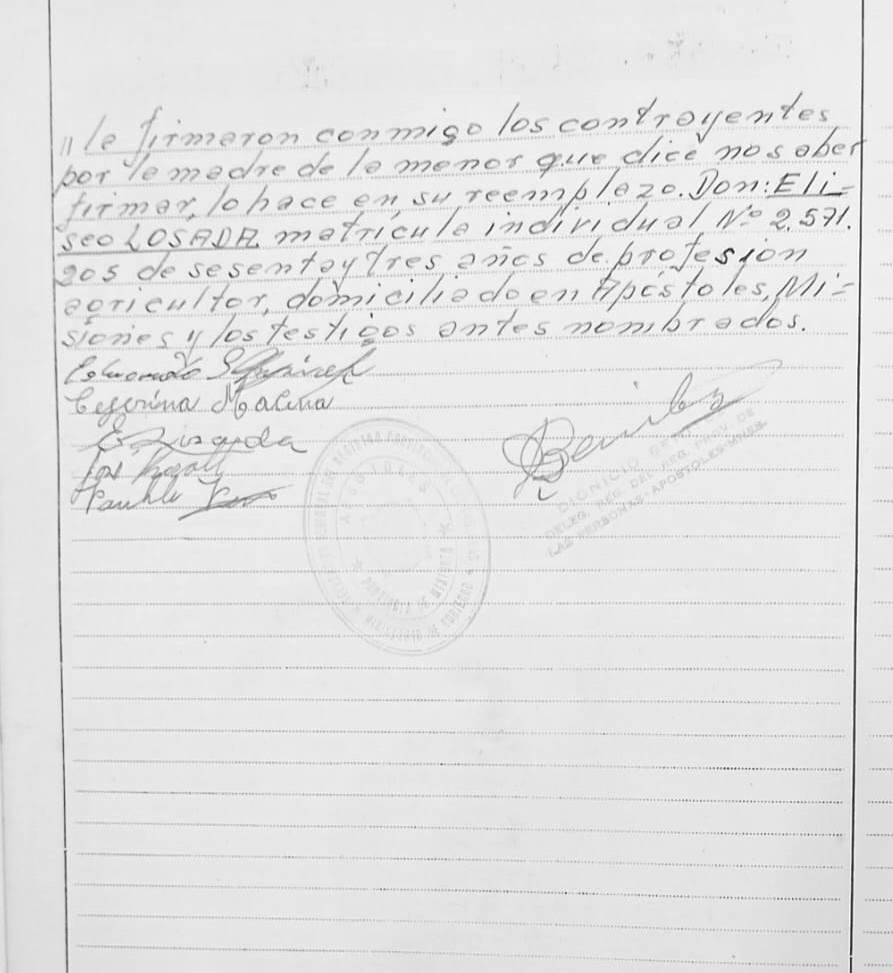 " la firmaron conmigo los contrayentes
por la madre de la menor que dice no saber
firmar, lo hace en su reemplazo. Don: Eli=
seo LOSADA matrícula individual Nº 2.571.
905 de sesenta y tres años de profesion
agricultor, domiciliado en Apóstoles, Mi=
siones y los testigos antes nombrados.
Eduardo
Ceferina
E Losada
Benitez
DIONICIO BENITEZ
DELEG. REG. DEL REG. PROV. DE
LAS PERSONAS-APOSTOLES-MNES.
APOSTOLES
PROVINCIA DE MISIONES